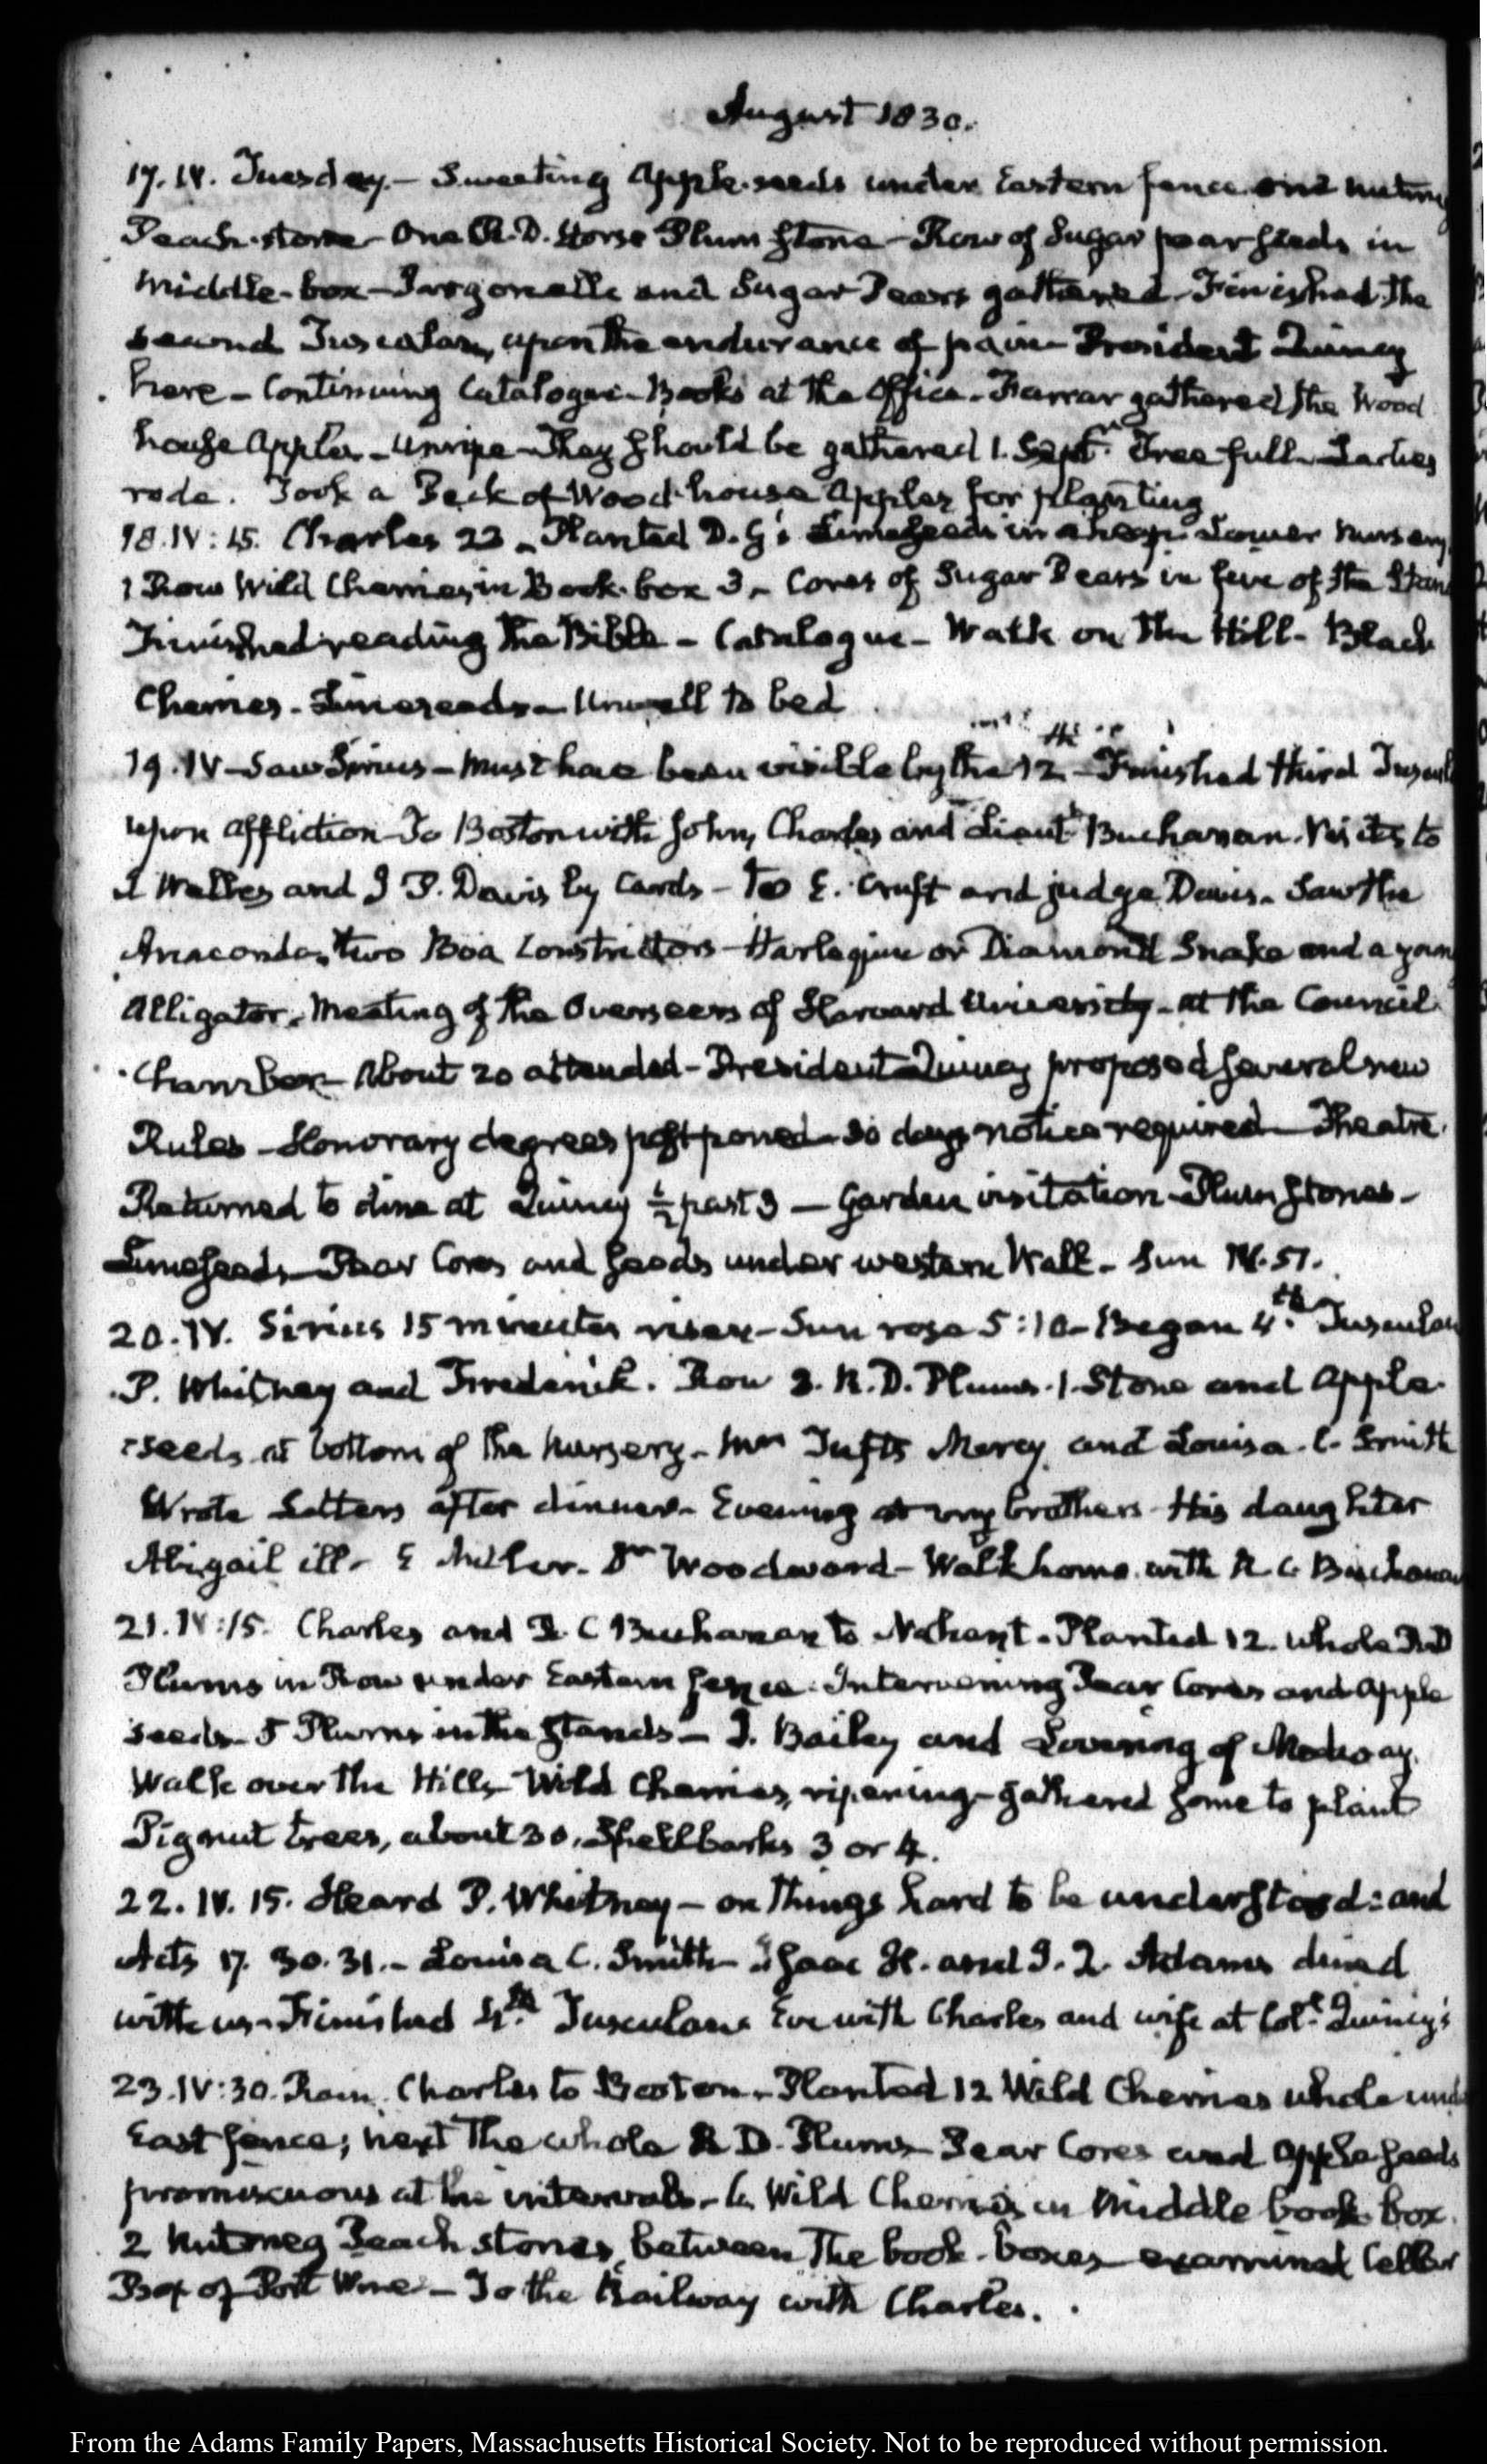 August 1830.
17. IV. Tuesday.— Sweeting Apple-seeds under Eastern fence and nutmeg
Peach-stone— One R.D. Horse Plum stone— Row of Sugar pear seeds in
middle-box— Jargonelle and Sugar Pears gathered— Finished the
second Tusculan, upon the endurance of pain— President Quincy
here— Continuing Catalogue— Books at the Office. Farrar gathered the Wood
house Apples— Unripe— They should be gathered 1. Septr. Tree full— Ladies
rode. Took a Peck of Wood-house Apples for planting
18. IV:15. Charles 23— Planted D. G's Limeseeds in a heap. Lower nursery
1 Row Wild Cherries, in Book-box 3— Cores of Sugar Pears in five of the Stan
Finished reading the Bible— Catalogue— Walk on the Hill— Black
Cherries— Limeseeds— Unwell to bed
19. IV— Saw Sirius— must have been visible by the 12th— Finished third Tuscul
upon affliction— To Boston with John, Charles and Lieutt. Buchanan. Visits to
and J P. Davis by Cards— To E. Cruft and judge Davis. Saw the
Anaconda, two Boa Constrictors— Harlequin or Diamond Snake and a youn
Alligator. Meeting of the Overseers of Harvard University— at the Council
Chamber— About 20 attended— President Quincy proposed several new
Rules— Honorary degrees postponed— 30 days notice required— Theatre.
Returned to dine at Quincy ½ past 3— Garden visitation— Plum stones—
Limeseeds— Pear Cores and seeds under western Wall— Sun IV.51.
20. IV. Sirius 15 minutes risen— Sun rose 5:10— Began 4th. Tusculan
P. Whitney and Frederick. Row 2. R.D. Plums. 1 Stone and Apple-
seeds at bottom of the Nursery— Mrs Tufts Mercy and Louisa. C. Smith
Wrote Letters after dinner— Evening at my brothers— His daughter
Abigail ill— E Miller. Dr Woodward— Walk home with R. C Buchanan
21. IV:15. Charles and R. C Buchanan to Nahant. Planted 12. whole R.D
Plums in Row under Eastern fence. Intervening Pear Cores and Apple
seeds— 5 Plums in the Stands— J. Bailey and Lovering of Medway.
Walk over the Hills— Wild Cherries, ripening— gathered some to plant
Pignut trees, about 30, Shellbarks 3 or 4.
22. IV. 15. Heard P. Whitney— on things hard to be understood: and
Acts 17. 30. 31.— Louisa C. Smith— Isaac H. and J. Q. Adams dined
with us— Finished 4th. Tusculan. Eve with Charles and wife at Coll. Quincy's
23. IV:30. Rain. Charles to Boston— Planted 12 Wild Cherries whole und
East fence; next the whole R D. Plums— Pear Cores and Apple seeds
promiscuous at the intervals— 6 Wild Cherries in Middle book-box.
2 Nutmeg Peach stones between the book-boxes— examined Cellar
Box of Port Wine— To the Railway with Charles.
From the Adams Family Papers, Massachusetts Historical Society. Not to be reproduced without permission.